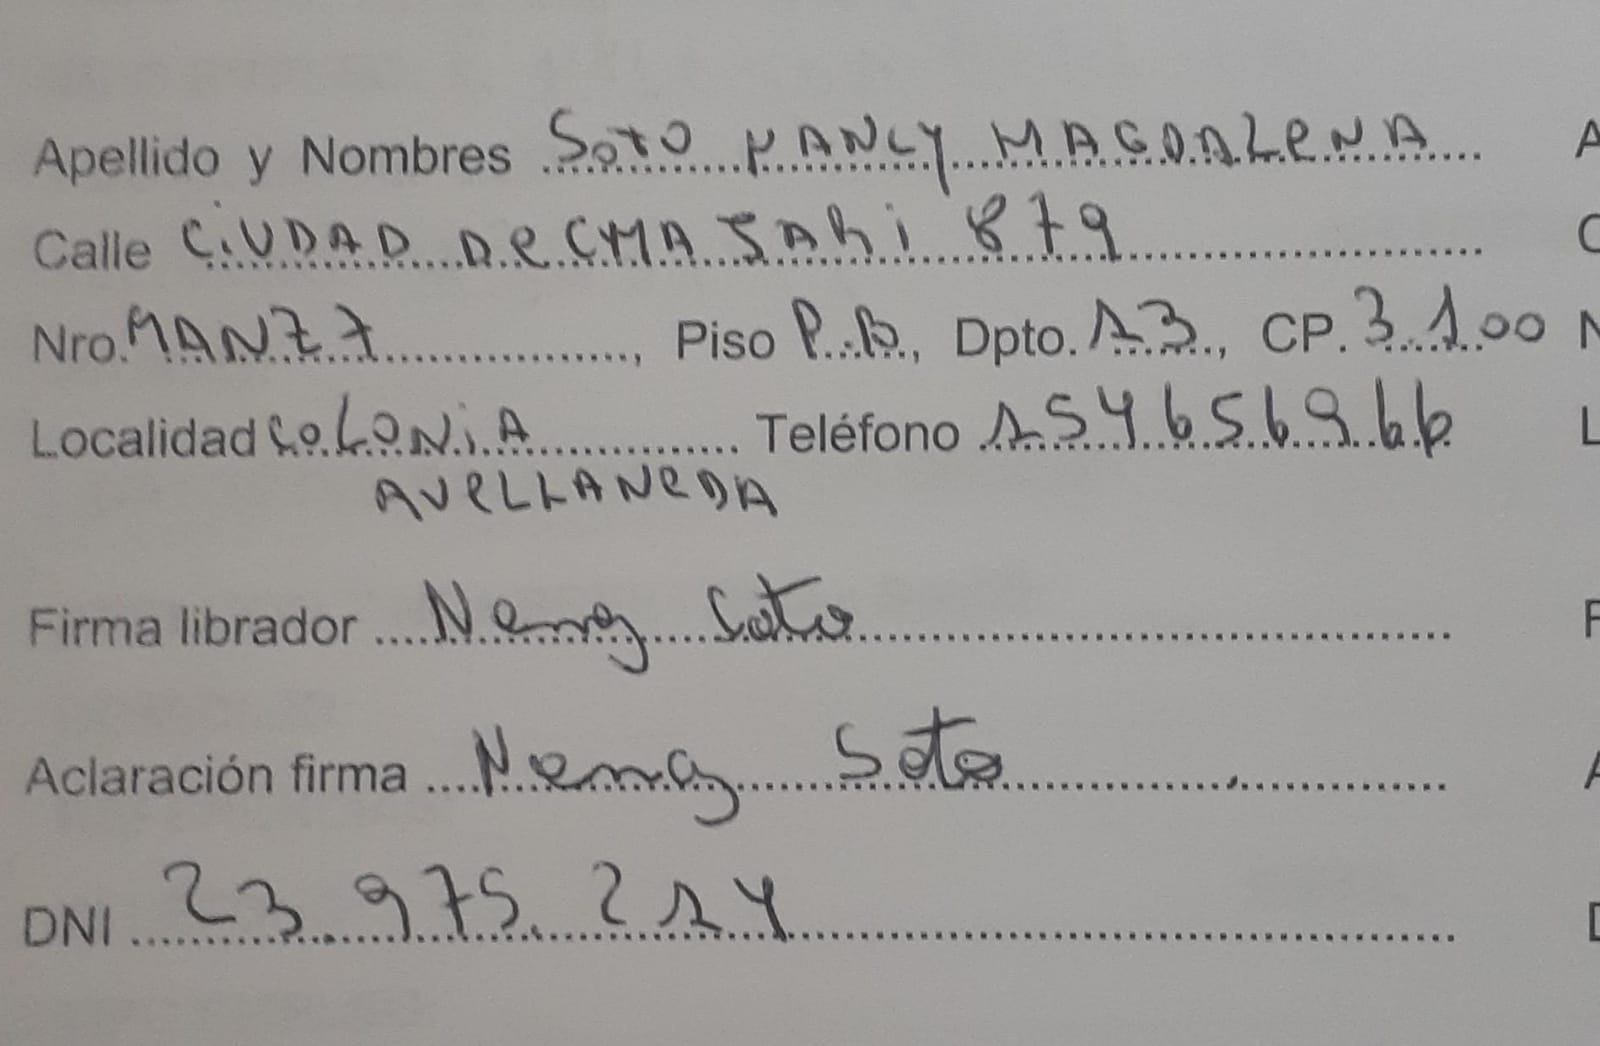 Apellido y Nombres Soto NANCY MAGDALeNA A
Calle CiUDAD De CMA SARi 879 C
Nro. MANZ 7, Piso P.B., Dpto. 13, CP. 3100 N
Localidad COLONiA Teléfono 154656966 L
AVeLLANeDA
Firma librador Nancy Soto F
Aclaración firma Nancy Soto A
DNI 23.975.214 D